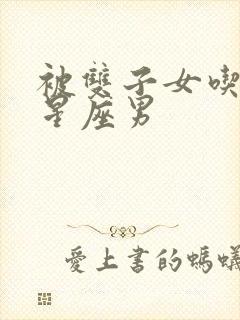 被雙子女喫
星座男
愛上書的螞蟻